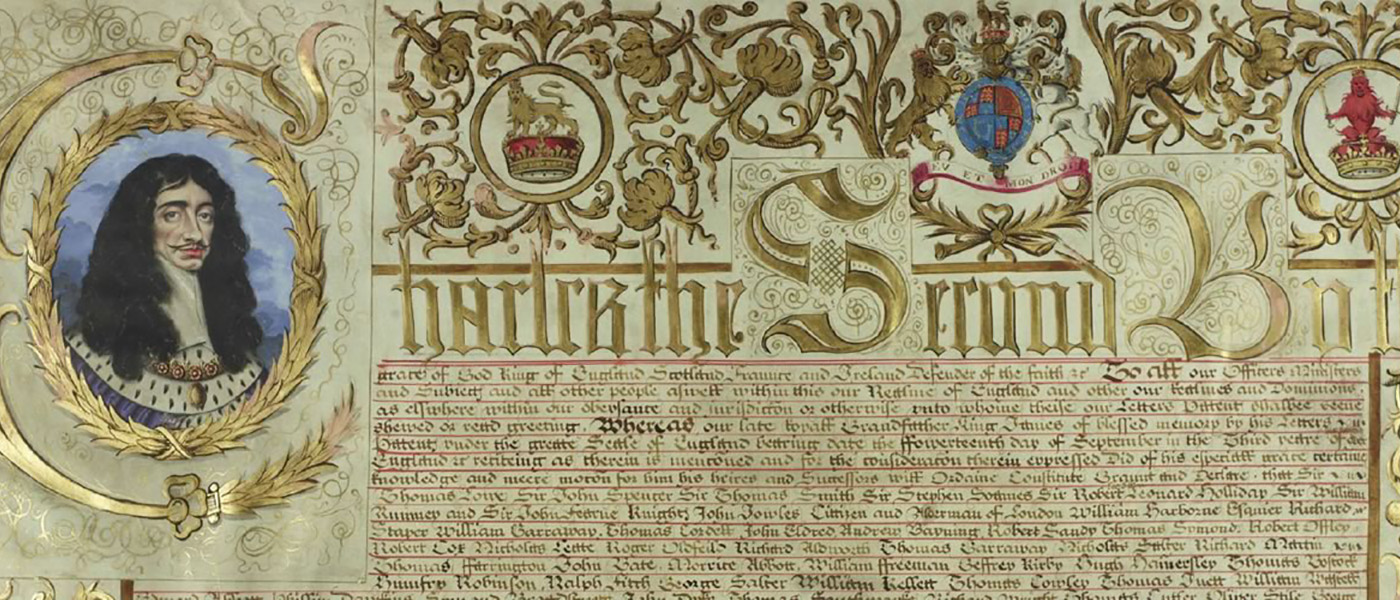 ET MON DROIT
Charles the Second By t
grace of God King of England Scotland Fraunce and Ireland Defender of the faith &c To all our Officers Ministers
and Subiects and all other people aswell within this our Realme of England and other our Realmes and Dominions
as elswhere within our obeysance and iurisdiccon or otherwise unto whome theise our Letters Patent shalbee seen
shewed or read greeting. Whereas our late Royall Grandfather King James of blessed memory by his Letters
Patent under the greate Seale of England bearing date the ffowerteenth day of September in the Third yeare of
England &c reciteing as therein is mentioned and for the consideracon therein expressed Did of his especiall grace certaine
knowledge and meere mocon for him his heires and Successors will Ordaine Constitute Graunt and Declare that Sir
Thomas Lowe Sir John Spencer Sir Thomas Smith Sir Stephen Soames Sir Robert Leonard Holliday Sir William
Rumney and Sir John Fearne Knights John Jowles Citizen and Alderman of London William Harborne Esquier Richard
Staper William Garraway Thomas Cordell John Eldred Andrew Bayning Robert Sandy Thomas Symond Robert Offley
Robert Cox Nicholas Leate Roger Oldfeild Richard Aldworth Thomas Garraway Nicholas Salter Richard Martin
Thomas Farrington John Bate Morrice Abbott William ffreeman Geffrey Kirby Hugh Hamersley Thomas Bostock
Humfry Robinson Ralph Fitch George Salter William Kellett Thomas Cowley Thomas Juett William